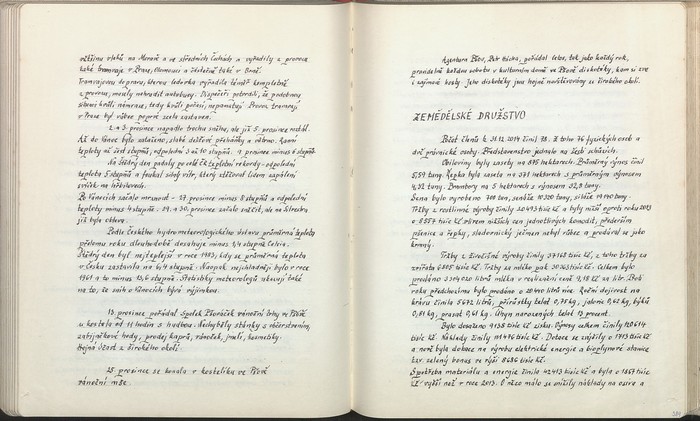 většinu vlaků na Moravě a ve středních Čechách a vyřadily z provozu
také tramvaje v Praze, Olomouci a částečně také v Brně.
Tramvajovou dopravu, kterou ledovka vyřadila téměř kompletně
z provozu, musely nahradit autobusy. Dispečeři potvrdili, že podobnou
situaci kvůli námraze, tedy kvůli počasí, nepamatují. Provoz tramvají
v Praze byl vůbec poprvé zcela zastaven.
2. a 3. prosince napadlo trochu sněhu, ale již 5. prosince roztál.
Až do Vánoc bylo zataženo, slabé dešťové přeháňky a větrno. Ranní
teploty až šest stupňů, odpolední 3 až 10 stupňů. 9. prosince minus 6 stupňů.
Na Štědrý den padaly po celé ČR teplotní rekordy - odpolední
teploty 5 stupňů a foukal silný vítr, který ztěžoval lidem zapálení
svíček na hřbitovech.
Po Vánocích začalo mrznout - 27. prosince minus 8 stupňů a odpolední
teploty minus 4 stupňů. 29. a 30. prosince začalo sněžit, ale na Silvestra
již byla obleva.
Podle Českého hydrometeorologického ústavu průměrná teplota
přelomu roku dlouhodobě dosahuje minus 1,4 stupně Celsia.
Štědrý den byl nejteplejší v roce 1983, kdy se průměrná teplota
v Česku zastavila na 6,4 stupně. Naopak nejchladněji bylo v roce
1961 a to minus 13,6 stupňů. Statistiky meteorologů ukazují také
na to, že sníh o Vánocích bývá výjimkou.
13. prosince pořádal Spolek Ptoráček vánoční trhy ve Pšově
u kostela od 11 hodin s hudbou. Nechyběly stánky s občerstvením,
zabijačkové hody, prodej kaprů, vánoček, jmelí, kosmetiky.
Hojná účast z širokého okolí.
25. prosince se konala v kostelíku ve Pšově
vánoční mše.
Agentura Pěto, Petr Hůcka, pořádal letos, tak jako každý rok,
pravidelně každou sobotu v kulturním domě ve Pšově diskotéky, kam si zve
i zajímavé hosty. Jeho diskotéky jsou hojně navštěvovány ze širokého okolí.
ZEMĚDĚLSKÉ DRUŽSTVO
Počet členů k 31.12.2014 činil 78. Z toho 76 fyzických osob a
dvě právnické osoby. Představenstvo jednalo na šesti schůzích.
Obiloviny byly zasety na 875 hektarech. Průměrný výnos činil
5,59 tuny. Řepka byla zaseta na 371 hektarech s průměrným výnosem
4,32 tuny. Brambory na 5 hektarech s výnosem 32,9 tuny.
Sena bylo vyrobeno 700 tun, senáže 10320 tuny, siláže 14740 tuny.
Tržby z rostlinné výroby činily 50493 tisíc Kč a byly nižší oproti roku 2013
o 8557 tisíc Kč vlivem nižších cen jednotlivých komodit, především
pšenice a řepky, sladovnický ječmen nebyl vůbec a prodával se jako
krmný.
Tržby z živočišné výroby činily 37167 tisíc Kč, z toho tržby za
zvířata 6805 tisíc Kč. Tržby za mléko pak 30363 tisíc Kč. Celkem bylo
prodáno 3304021 litrů mléka v realizační ceně 9,18 Kč za litr. Proti
roku předchozímu bylo prodáno o 20440 litrů více. Roční dojivost na
krávu činila 5672 litrů, přírůstky telat 0,75 kg, jalovic 0,62 kg, býků
0,81 kg, prasat 0,61 kg. Úhyn narozených telat 13 procent.
Bylo dosaženo 9138 tisíc Kč zisku. Výnosy celkem činily 120614
tisíc Kč. Náklady činily 111476 tisíc Kč. Dotace se zvýšily o 1713 tisíc Kč
a nově byla dotace na výrobu elektrické energie z bioplynové stanice
tzv. zelený bonus ve výši 8636 tisíc Kč.
Spotřeba materiálu a energie činila 42413 tisíc Kč a byla o 1857 tisíc
Kč vyšší než v roce 2013. O něco málo se snížily náklady na osiva a